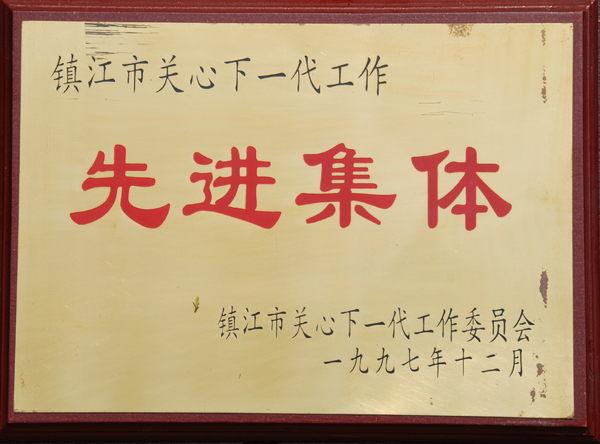 镇江市关心下一代工作
先进集体
镇江市关心下一代工作委员会
一九九七年十二月